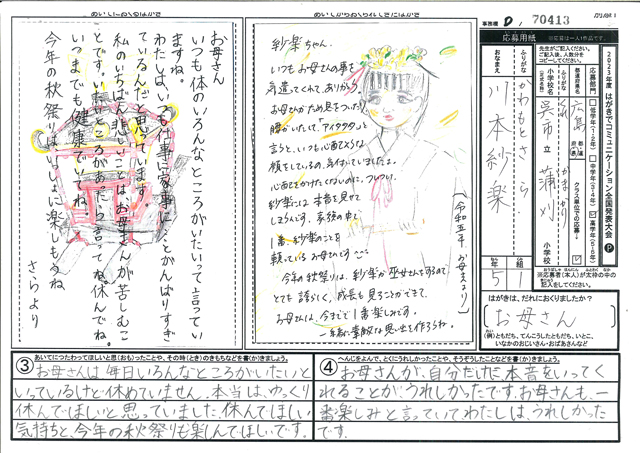 あいてにおくるはがき
お母さん
いつも体のいろんなところがいたいって言ってい
ますね。
わたしは、いつも仕事に家事にとがんばりすぎ
ているんだと思っています。
私のいちばん悲しいことはお母さんが苦しむこ
とです。いたいところがあったら言ってね。休んでね。
いつまでも健康でいてね。
今年の秋祭りはいっしょに楽しもうね。
さらより
あいてからおくられてきたはがき
紗楽ちゃん。
いつもお母さんの事を
気遣ってくれてありがとう。
お母さんがため息をついたり
腰がいたいて、「アイタタタ」と
言うと、いつも心配そうな
顔をしている事、気付いていましたよ。
心配をかけたくないのに、ついつい
紗楽には本音を見せて
しまうんです。家族の中で
1番紗楽のことを
頼っているお母さんです
今年の秋祭りは、紗楽が巫女さんをするので
とても誇らしく、成長も見ることができて、
お母さんは、今までで1番楽しみです。
一緒に素敵な思い出を作ろうね。
(令和五年 お母さんより)
事務欄 D / 70413
応募用紙
※応募は一人1作品です。
2023年度 はがきでコミュニケーション全国発表大会
先生がご記入ください。
ご記入後、人数分を
コピーしてください。
応募部門
低学年(1・2年)
中学年(3・4年)
高学年(5・6年)
都道府県名
広島
クラス単位での応募
ふりがな
小学校名
(正式名称)
呉市 立 蒲刈 小学校
かまがり
ふりがな
おなまえ
かわもと さら
川本紗楽
年 組
5 1
※応募者(本人)が太枠の中の
記入をしてください。
はがきは、だれにおくりましたか?
お母さん
(例)ともだち、てんこうしたともだち、いとこ、
いなかのおじいさん・おばあさんなど
③ あいてにつたわってほしいと思(おも)ったことや、その時(とき)のきもちなどを書(か)きましょう。
お母さんは毎日いろんなところがいたいと
いっているけど休めていません。本当は、ゆっくり
休んでほしいと思っていました。休んでほしい
気持ちと、今年の秋祭りも楽しんでほしいです。
④ へんじをよんで、とくにうれしかったことや、そうぞうしたことなどを書(か)きましょう。
お母さんが、自分だけに本音をいってく
れることが、うれしかったです。お母さんも、一
番楽しみと言っていてわたしは、うれしかった
です。